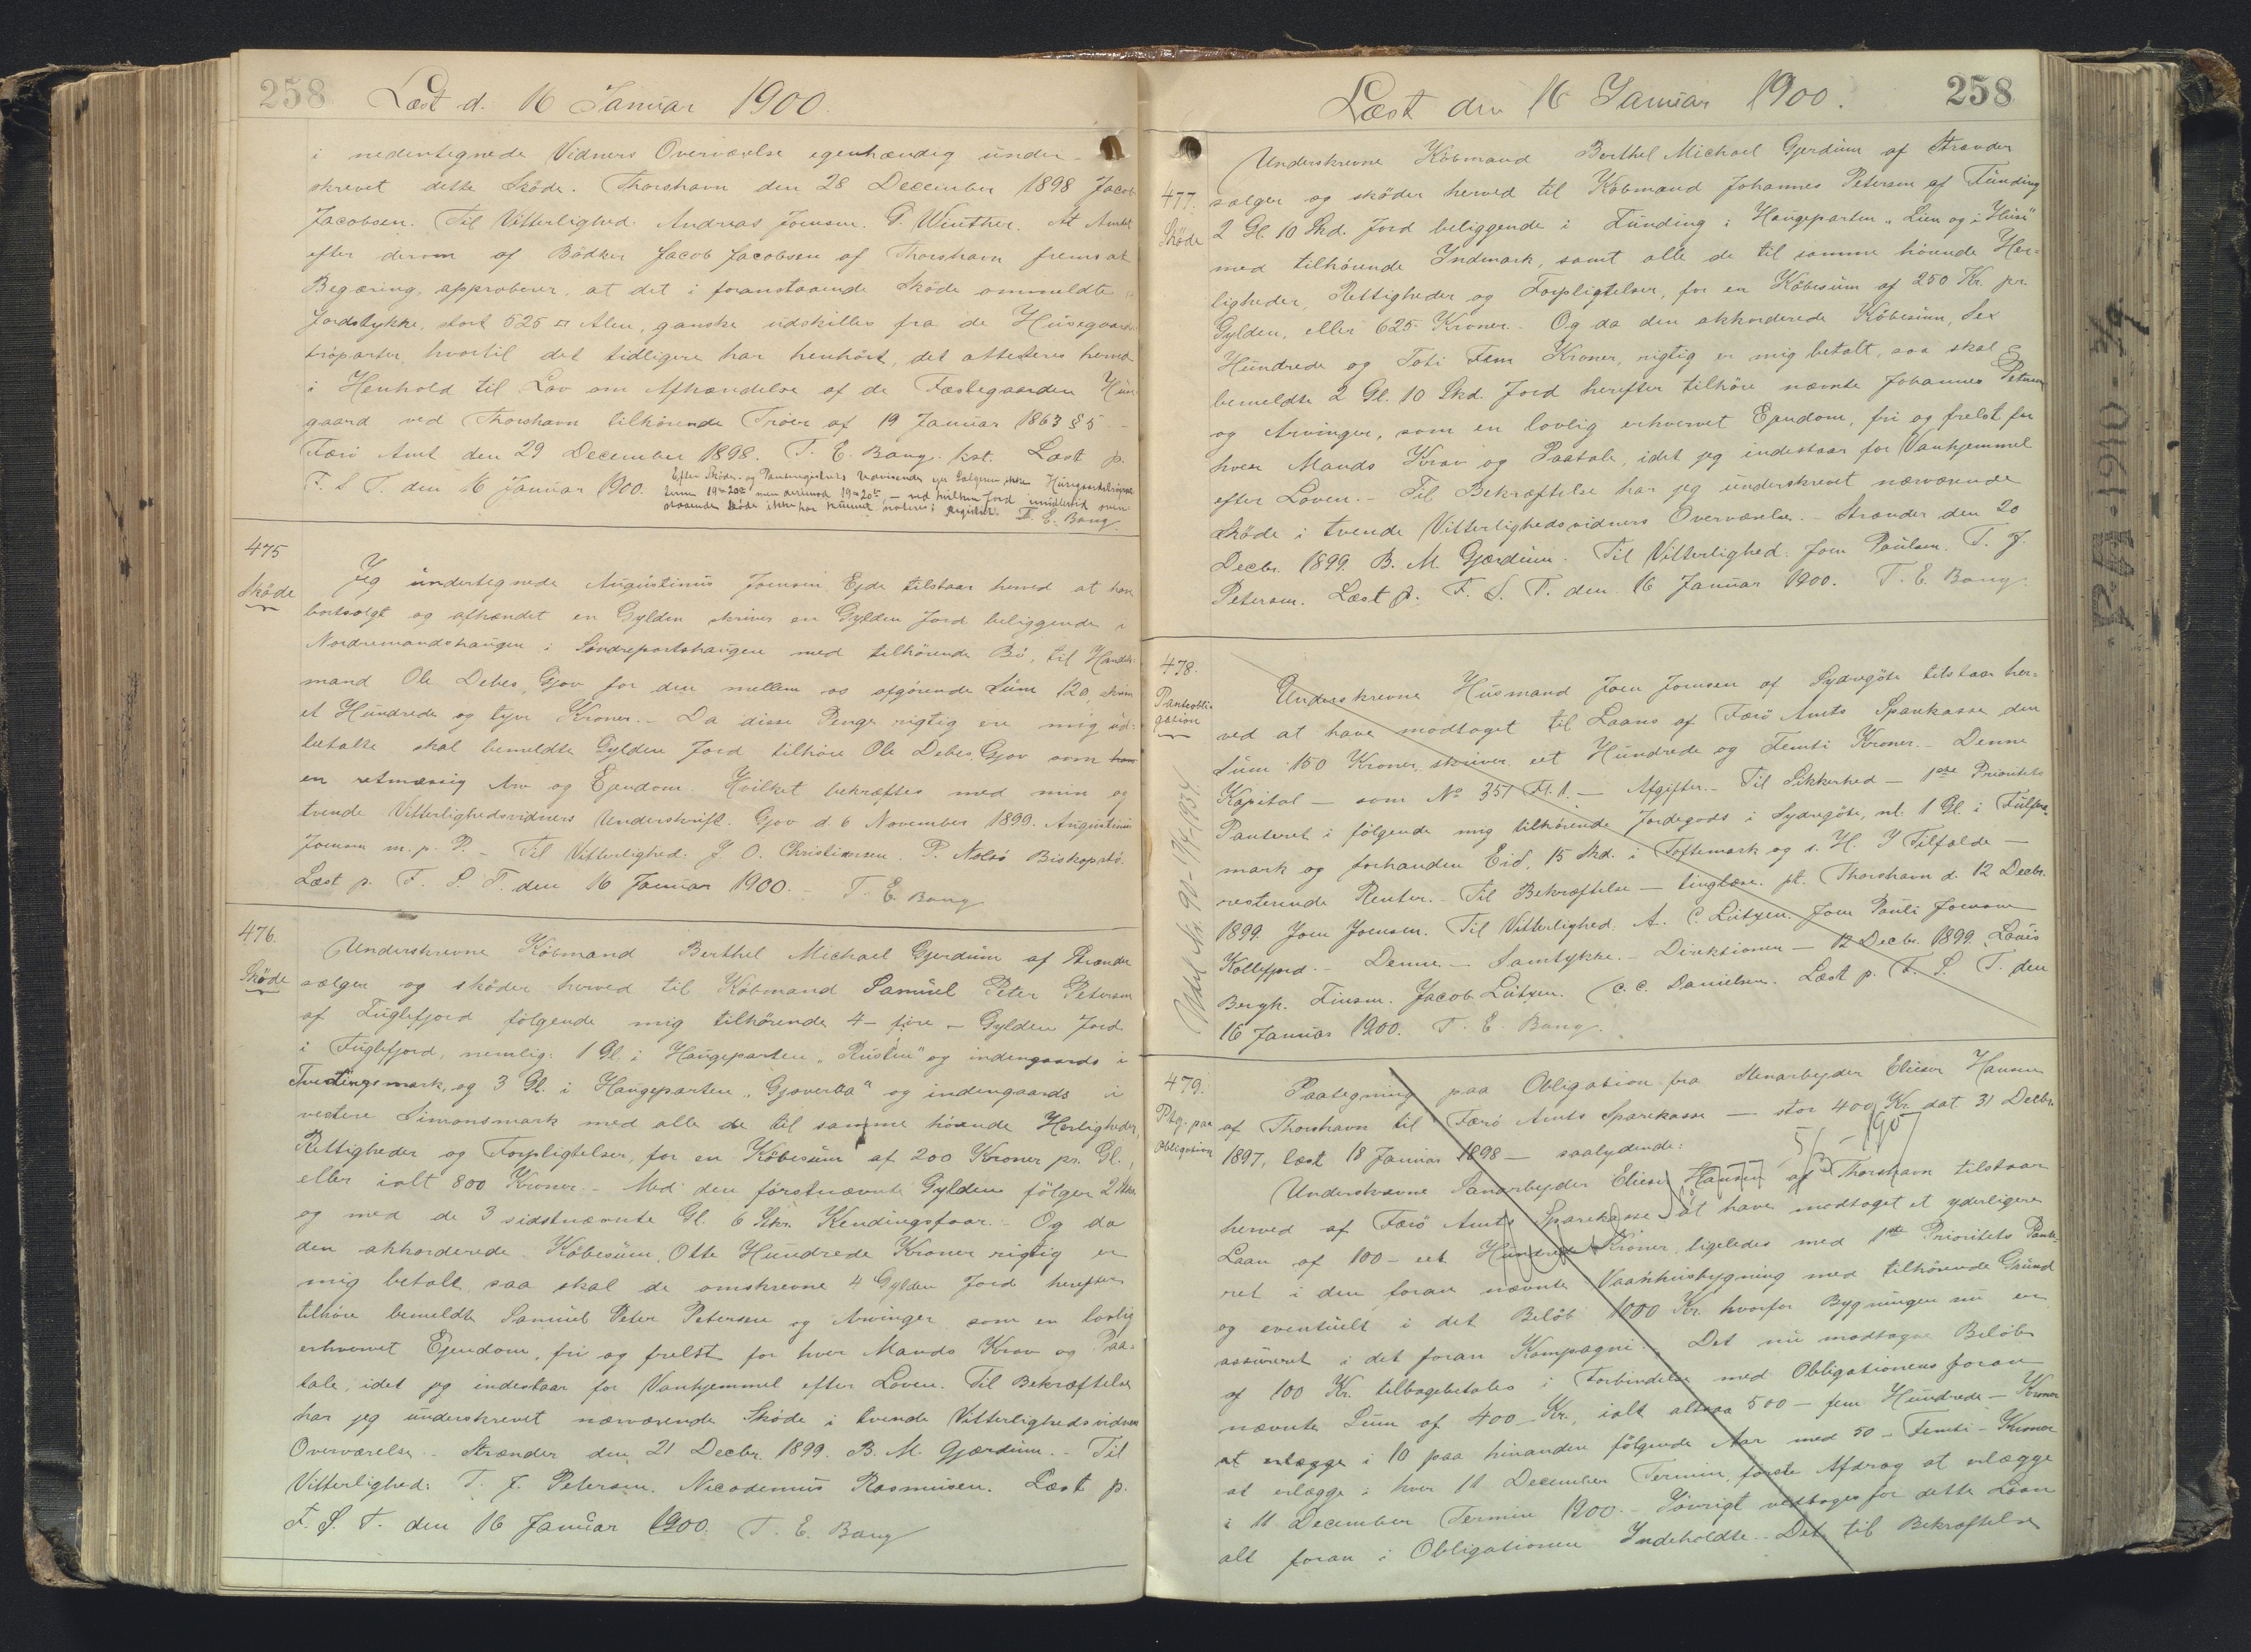 258
Læst d. 16 Januar 1900.
i nedentegnede Vidners Overværelse egenhændig under-
skrevet dette Skøde. Thorshavn den 28 December 1898 Jacob
Jacobsen. Til Vitterlighed. Andreas Joensen. P. Winther. At Amtet
efter derom af Bödker Jacob Jacobsen af Thorshavn fremsat
Begæring, approberer, at det i foranstaaende Skøde ommeldte
Jordstykke, stort 525 □ Alen, ganske udskilles fra de Húsegaards
tröparter, hvortil det tidligere har henhört, det attesteres herved
i Henhold til Lov om Afhændelse af de Fæstegaarden Hús-
gaard ved Thorshavn tilhörende Tröer af 19 Januar 1863 § 5
Færö Amt den 29 December 1898. T. E. Bang. kst. Læst p.
F. S. T. den 16 Januar 1900.
Efter Skøde- og Panteregisterets Udvisende ejer Sælgeren ikke Húsegaardströparterne
19de 20de men derimod 19de 20de, - ved hvilken Jord imidlertid oven-
staaende Skøde ikke har kunnet noteres i Registeret. T. E. Bang.
475
Skøde
Jeg undertegnede Augústinus Joensen Ejde tilstaar herved at have
bortsolgt og afhændet en Gylden skriver en Gylden Jord beliggende i
Nordremandshaugen i Søndrepartshaugen med tilhörende Bö, til Handels-
mand Ole Debes, Gjov for den mellem os afgörende Súm 120, skriv
et Húndrede og tyve Kroner. - Da disse Penge rigtig ere mig ud-
betalte skal bemeldte Gylden Jord tilhöre Ole Debes, Gjov som
en retmæssig Arv og Ejendom. Hvilket bekræftes med min og
tvende Vitterlighedsvidners Underskrift. Gjov d. 6 November 1899. Augústinus
Joensen m. p. P. - Til Vitterlighed: J. O. Christiansen. P. Nolsö Biskopstö.
Læst p. F. S. T. den 16 Januar 1900. - T. E. Bang
476.
Skøde
Underskrevne Kóbmand Berthel Michael Gjerdúm af Strænder
sælger og skøder herved til Kóbmand Samúel Peter Petersen
af Fúglefjord fölgende mig tilhörende 4 - fire - Gylden Jord
i Fúglefjord, nemlig: 1 Gl. i Haugeparten "Rústin" og indengaards i
Tvedingsmark, og 3 Gl. i Haugeparten "Gjoveraa" og indengaards i
vestere Simonsmark med alle de til samme hörende Herligheder,
Rettigheder og Forpligtelser, for en Kóbesúm af 200 Kroner pr. Gl.,
eller ialt 800 Kroner. - Med den förstnævnte Gylden fölger 2 Stkr.
og med de 3 sidstnævnte Gl. 6 Stkr. Kendingsfaar. - Og da
den akkorderede Kóbesúm, Otte Húndrede Kroner rigtig er
mig betalt, saa skal de omskrevne 4 Gylden Jord herefter
tilhöre bemeldte Samúel Peter Petersen og Arvinger som en lovlig
erhvervet Ejendom, fri og frelst for hver Mands Krav og Paa-
tale, idet jeg indestaar for Vanhjemmel efter Loven. Til Bekræftelse
har jeg únderskrevet nærværende Skøde i tvende Vitterlighedsvidners
Overværelse. - Strænder den 21 Decbr. 1899. B. M. Gjærdúm. - Til
Vitterlighed: T. J. Petersen. Nicodemús Rasmúsen. Læst p.
F. S. T. den 16 Januar 1900. T. E. Bang
Læst den 16 Januar 1900.
258
477.
Skøde
Underskrevne Kóbmand Berthel Michael Gjerdúm af Strænder
sælger og skøder herved til Kóbmand Johannes Petersen af Fúnding
2 Gl. 10 Skd. Jord beliggende i Fúnding i Haugeparten "Lien og i Húsi"
med tilhörende Indmark, samt alle de til samme hörende Her-
ligheder, Rettigheder og Forpligtelser, for en Kóbesúm af 250 Kr. pr.
Gylden, eller 625 Kroner. Og da den akkorderede Kóbesúm, Sex
Húndrede og Toti Fem Kroner, rigtig er mig betalt, saa skal
bemeldte 2 Gl. 10 Skd. Jord herefter tilhöre nævnte Johannes Petersen
og Arvinger, som en lovlig erhvervet Ejendom, fri og frelst for
hver Mands Krav og Paatale, idet jeg indestaar for Vanhjemmel
efter Loven. - Til Bekræftelse har jeg underskrevet nærværende
Skøde i tvende Vitterlighedsvidners Overværelse. - Strænder den 20
Decbr. 1899. B. M. Gjærdúm. Til Vitterlighed: Joen Paulsen. T. J.
Petersen. Læst p. F. S. T. den 16 Januar 1900. T. E. Bang.
478.
Panteobli-
gation
Underskrevne Húsmand Joen Joensen af Sydrogöte tilstaar her-
ved at have modtaget til Laans af Færö Amts Sparkasse den
Súm 150 Kroner, skriver eet Húndrede og Femti Kroner. - Denne
Kapital - som No 351 Fl. 1. - Afgifter. - Til Sikkerhed - 1ste Prioritets
Panteret i fölgende mig tilhörende Jordegods i Sydrogöte, nl. 1 Gl. i
mark og forhanden Eid, 15 Skd. i Toftemark og s. H. I Tilfælde -
resterende Renter. - Til Bekræftelse - tinglæse. pt. Thorshavn d. 12 Decbr.
1899. Joen Joensen. Til Vitterlighed: A. C. Lützen. Joen Pauli Joensen
Kollefjord. - Denne. - Samtykke. - Direktionen - 12 Decbr. 1899. Louis
Bergh. Finsen. Jacob Lützen. C. C. Danielsen. Læst p. F. S. T. den
16 Januar 1900. T. E. Bang.
Udsl. Nr. 90 - 1934.
479.
Ptg. paa
Obligation
Paategning paa Obligation fra Stenarbejder Elieser Hansen
af Thorshavn til Færö Amts Sparekasse - stor 400 Kr. dat. 31 Decbr.
1897, læst 18 Januar 1898 - saalydende:
Underskrevne Stenarbejder Elieser Hansen af Thorshavn tilstaar
herved af Færö Amts Sparekasse at have modtaget et yderligere
Laan af 100 - eet Húndrede Kroner, ligeledes med 1ste Prioritets Pante-
ret i den foran nævnte Vaanhúsbygning med tilhörende Grúnd
og eventúelt i det Belöb 1000 Kr. hvorfor Bygningen nú er
assúreret i det foran Kompagni. Det nú modtagne Belöb
af 100 Kr. tilbagebetales i Forbindelse med Obligationens foran
nævnte Súm af 400 Kr., ialt altsaa 500 - fem Húndrede - Kroner
at erlægge i 10 paa hinanden fölgende Aar med 50 - Femti - Kroner
at erlægge i hver 11 December Termin, förste Afdrag at erlægge
i 11 December Termin 1900. - Iövrigt vedtages for dette Laan
alt foran i Obligationen Indeholdte. - Det til Bekræftelse